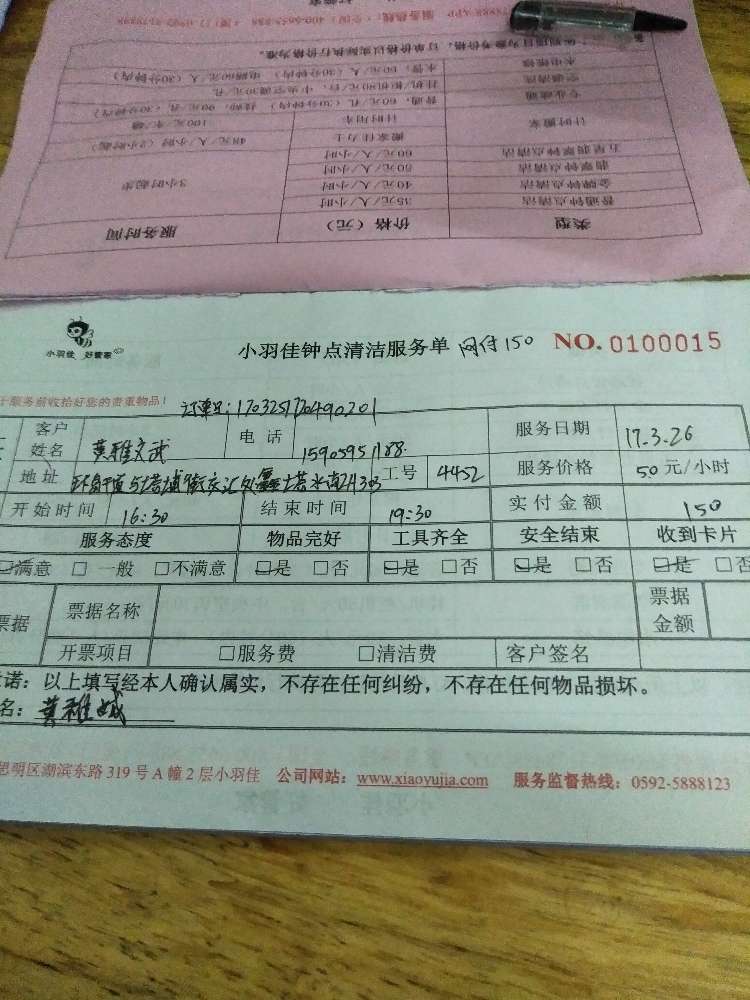 服务热线：
备注：以上项目为参考价格，订单价格以实际执行价格为准。
水电维修 水、管：60元/人（30分钟内） 电路60元/人（30分钟内）
空调清洗 挂机/柜机80元/台，中央空调30元/孔
专业疏通 普通，60元/孔（30分钟内） 马桶，90元/孔（30分钟内）
计时搬家 计时用车 100元/车/趟
搬家佳力士 48元/人/小时（2小时起）
五星翡翠钟点清洁 60元/人/小时
翡翠钟点清洁 50元/人/小时
金牌钟点清洁 40元/人/小时 3小时起步
普通钟点清洁 35元/人/小时
类型 价格（元） 服务时间
小羽佳 好管家
小羽佳钟点清洁服务单 网付150 NO.0100015
服务前收拾好您的贵重物品！
客户姓名 电话 服务日期 17.3.26
地址 工号 4452 服务价格 50元/小时
开始时间 16:30 结束时间 19:30 实付金额 150
服务态度 物品完好 工具齐全 安全结束 收到卡片
☑满意 □一般 □不满意 ☑是 □否 ☑是 □否 ☑是 □否 ☑是 □否
票据 票据名称 票据金额
开票项目 □服务费 □清洁费 客户签名
诺：以上填写经本人确认属实，不存在任何纠纷，不存在任何物品损坏。
名：
思明区湖滨东路319号A幢2层小羽佳 公司网站：www.xiaoyujia.com 服务监督热线：0592-5888123